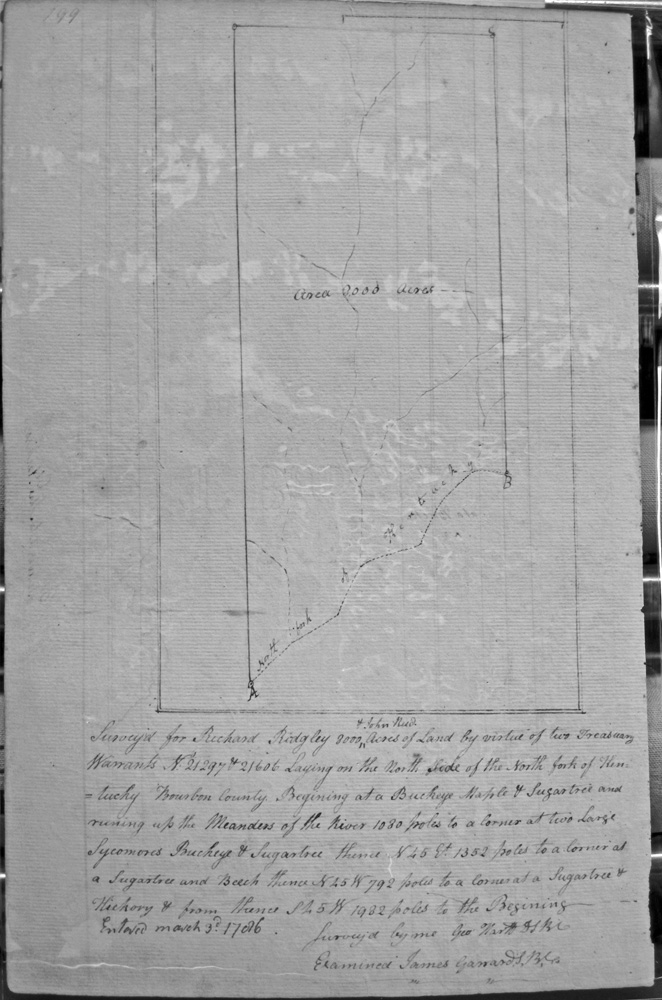 199
Area 8000 Acres
North fork of Kentucky
B
A
& John Reed
Survey'd for Richard Ridgley 8000 Acres of Land by virtue of two Treasury
Warrants No 21297 & 21606 Laying on the North Side of the North fork of Ken
=tucky Bourbon County. Begining at a Buckeye Maple & Sugartree and
runing up the Meanders of the River 1080 poles to a Corner at two Large
Sycomores Buckeye & Sugartree thence N 45 Et 1352 poles to a Corner at
a Sugartree and Beech thence N 45 W 792 poles to a Corner at a Sugartree &
Hickory & from thence S 45 W 1982 poles to the Begining
Entered march 3d 1786.
Survey'd by me Geo
Examined James Garrard S.B.C.